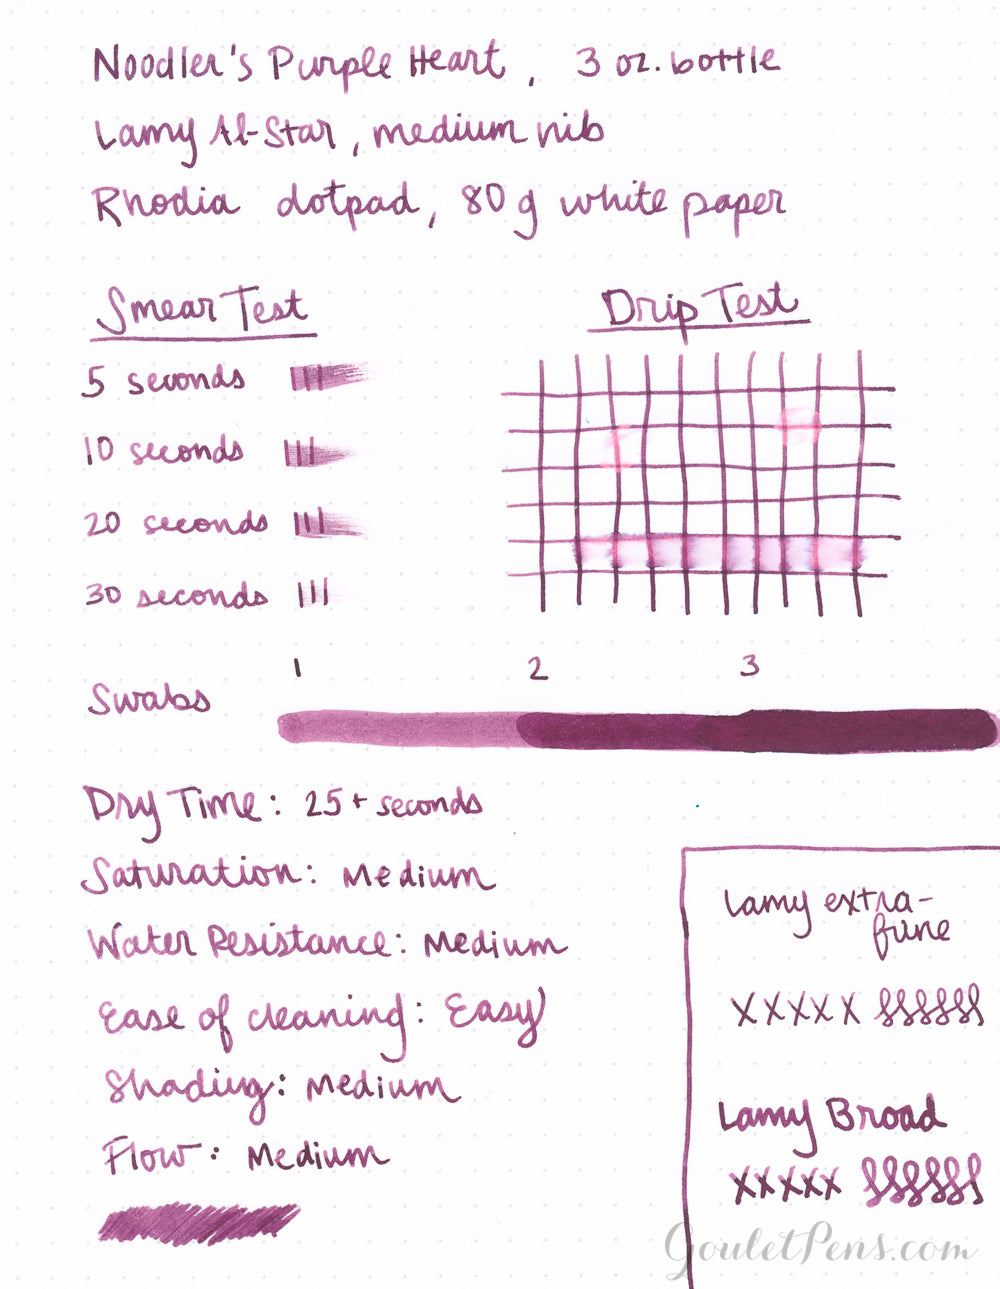 Noodler's Purple Heart, 3 oz. bottle
Lamy Al-Star, medium nib
Rhodia dotpad, 80 g white paper
Smear Test
5 seconds
10 seconds
20 seconds
30 seconds
Drip Test
1 2 3
Swabs
Dry Time: 25+ seconds
Saturation: Medium
Water Resistance: Medium
Ease of cleaning: Easy
Shading: Medium
Flow: Medium
Lamy extra-
fine
xxxxx
Lamy Broad
xxxxx
GouletPens.com